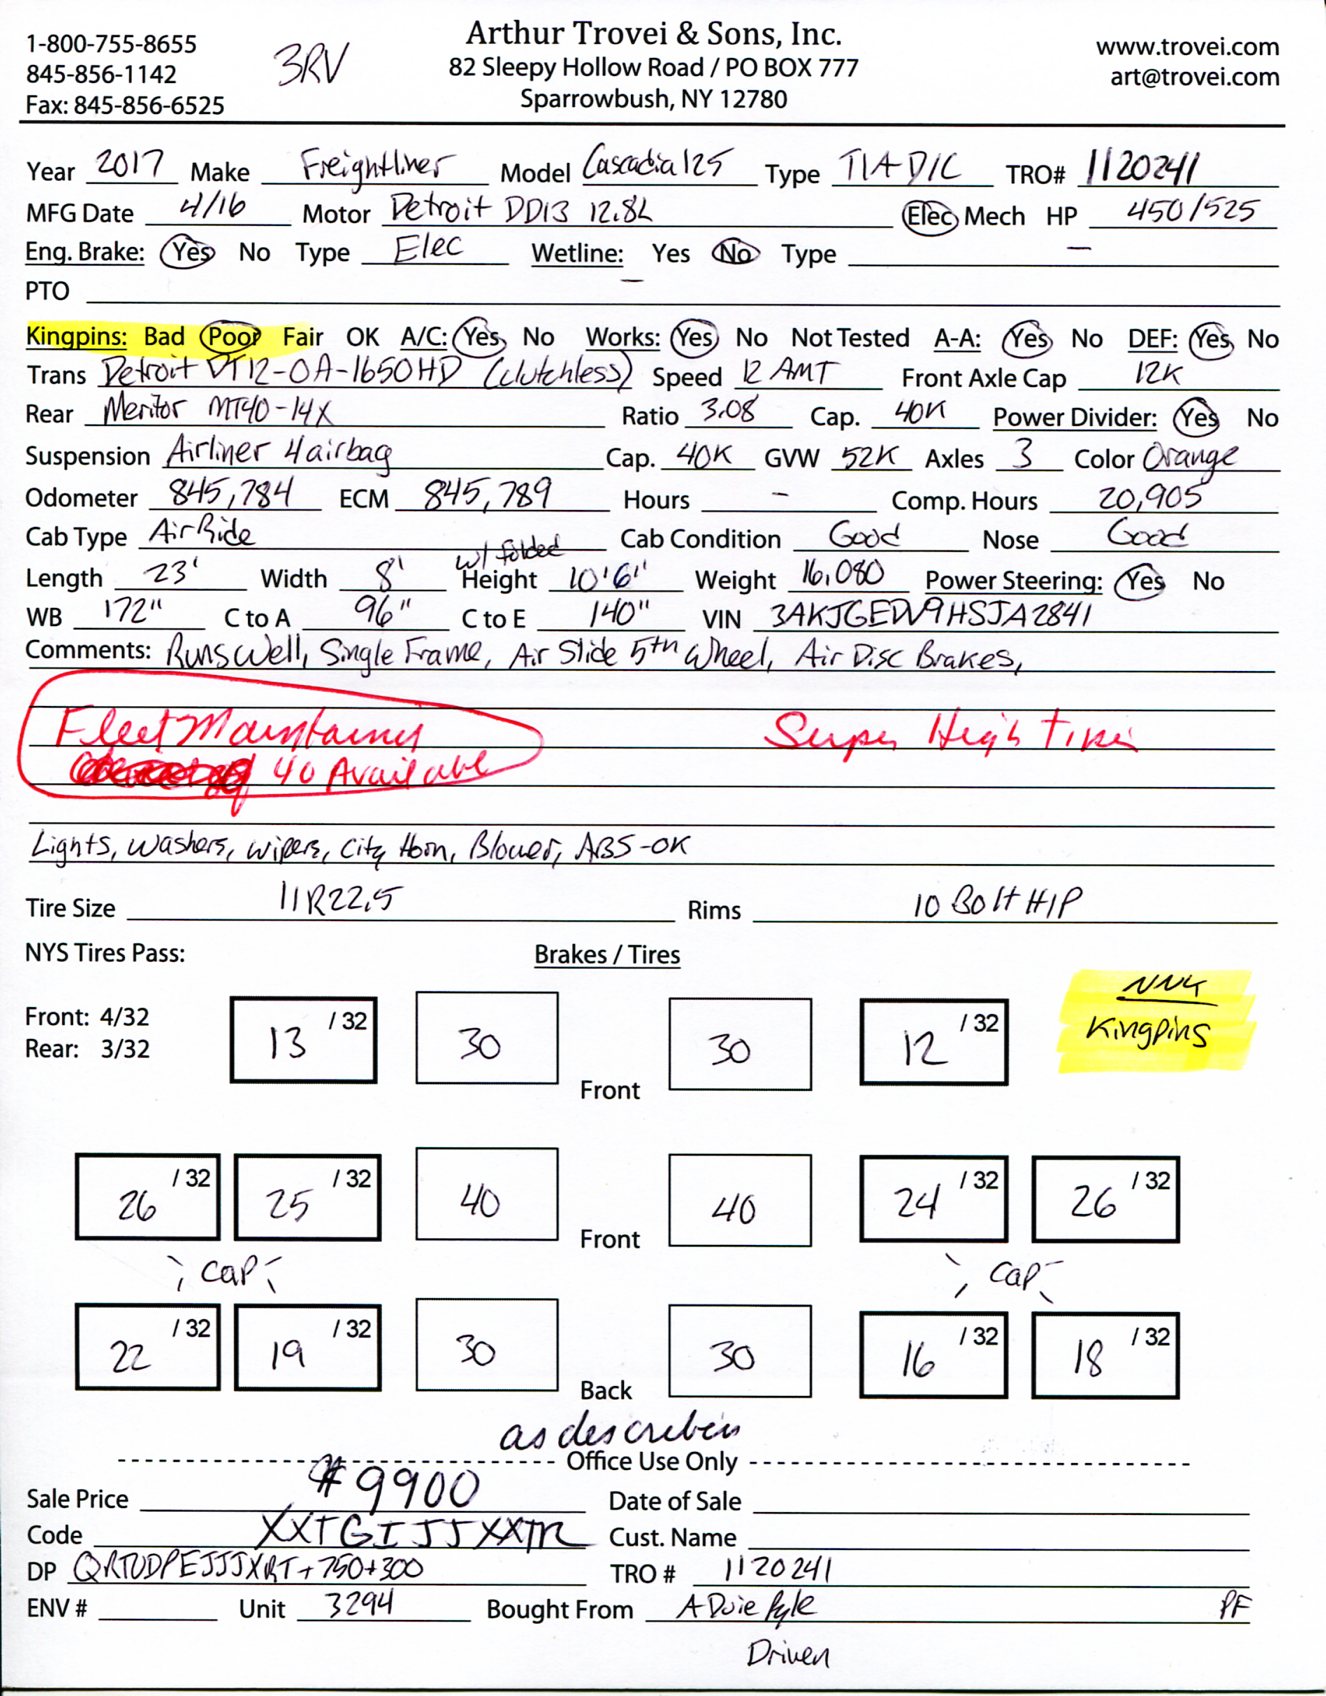 1-800-755-8655
845-856-1142
Fax: 845-856-6525
3RV
Arthur Trovei & Sons, Inc.
82 Sleepy Hollow Road / PO BOX 777
Sparrowbush, NY 12780
www.trovei.com
art@trovei.com
Year 2017 Make Freightliner Model Cascadia 125 Type T/A D/C TRO# 1120241
MFG Date 4/16 Motor Detroit DD13 12.8L Elec Mech HP 450/525
Eng. Brake: Yes No Type Elec Wetline: Yes No Type —
PTO —
Kingpins: Bad Poor Fair OK A/C: Yes No Works: Yes No Not Tested A-A: Yes No DEF: Yes No
Trans Detroit DT12-OA-1650HD (Clutchless) Speed 12 AMT Front Axle Cap 12K
Rear Meritor MT40-14X Ratio 3.08 Cap. 40K Power Divider: Yes No
Suspension Airliner 4 airbag Cap. 40K GVW 52K Axles 3 Color Orange
Odometer 845,784 ECM 845,789 Hours - Comp. Hours 20,905
Cab Type Air Ride Cab Condition Good Nose Good
Length 23' Width 8' w/ folded Height 10'6" Weight 16,080 Power Steering: Yes No
WB 172" C to A 96" C to E 140" VIN 3AKJGEDV9HSJA2841
Comments: Runs Well, Single Frame, Air Slide 5th Wheel, Air Disc Brakes,
Fleet Maintained Super High Tires
40 Available
Lights, Washers, Wipers, City Horn, Blower, ABS-OK
Tire Size 11R22.5 Rims 10 Bolt H/P
NYS Tires Pass: Brakes / Tires
Front: 4/32
Rear: 3/32
13 /32 30 Front 30 12 /32
Kingpins
26 /32 25 /32 40 Front 40 24 /32 26 /32
Cap Cap
22 /32 19 /32 30 Back 30 16 /32 18 /32
as described
Office Use Only
Sale Price #9900 Date of Sale
Code XXTGIJJXXTR Cust. Name
DP QRTUDPEJJJXRT+750+300 TRO # 1120241
ENV # Unit 3294 Bought From A Duie Pyle PF
Driven